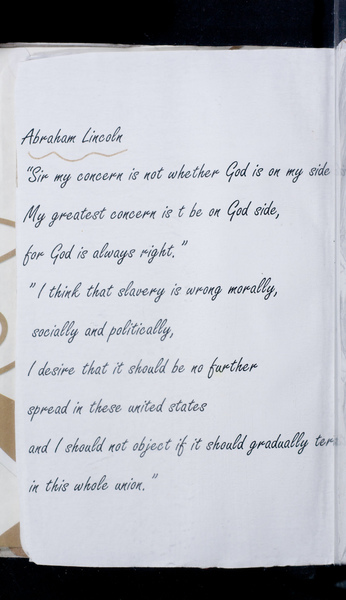 Abraham Lincoln
"Sir my concern is not whether God is on my side
My greatest concern is t be on God side,
for God is always right."
"I think that slavery is wrong morally,
socially and politically,
I desire that it should be no further
spread in these united states
and I should not object if it should gradually
in this whole union."